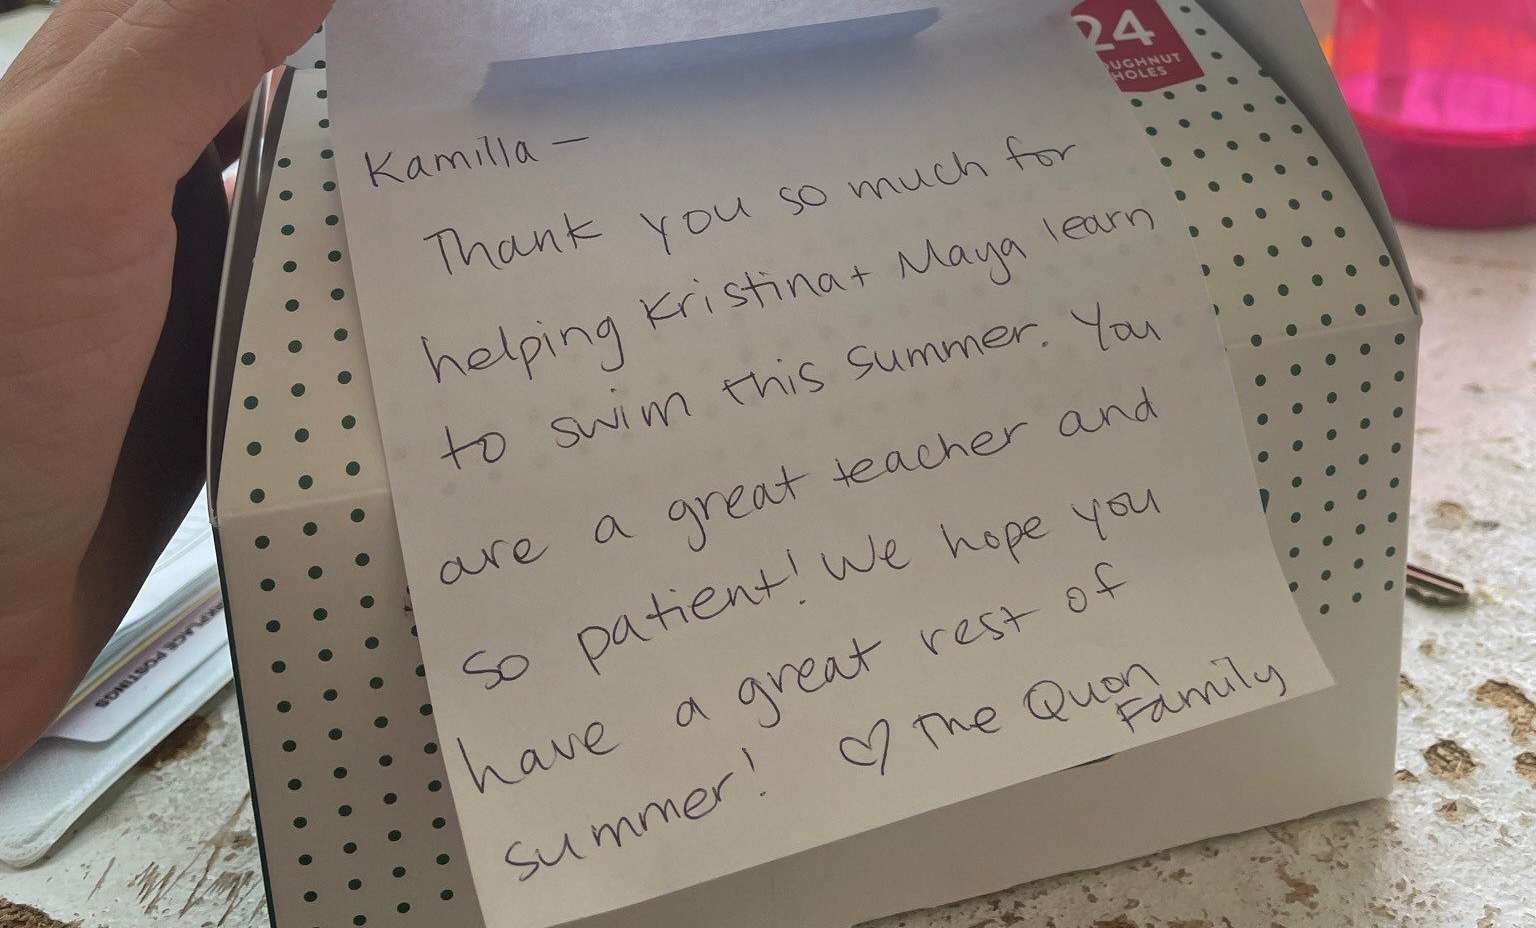 24
DOUGHNUT
HOLES
Kamilla —
Thank you so much for
helping Kristina + Maya learn
to swim this summer. You
are a great teacher and
so patient! We hope you
have a great rest of
summer! ♡ The Quon
Family
POSTINGS